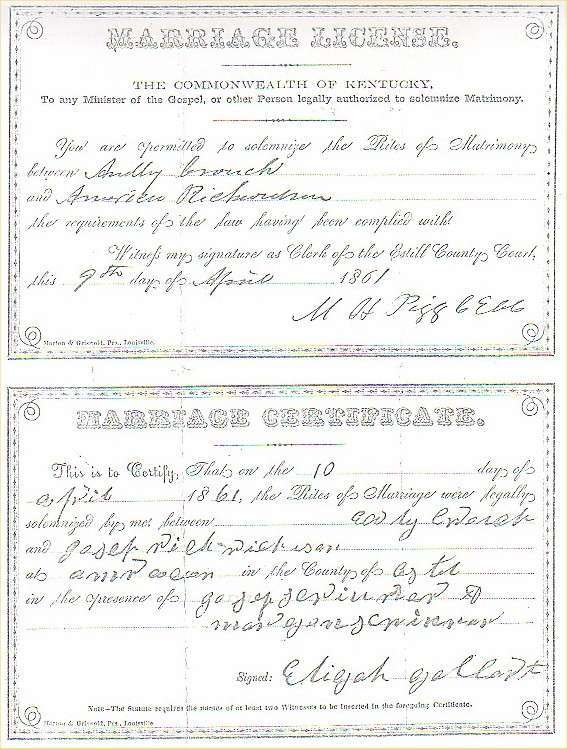 MARRIAGE LICENSE.
THE COMMONWEALTH OF KENTUCKY,
To any Minister of the Gospel, or other Person legally authorized to solemnize Matrimony.
You are permitted to solemnize the Rites of Matrimony
between Andly Crouch
and America Richardson
the requirements of the law having been complied with.
Witness my signature as Clerk of the Estill County Court,
this 9th day of April 1861
M H Pigg C E C C
Morton & Griswold, Prs., Louisville.
MARRIAGE CERTIFICATE.
This is to Certify, That on the 10 day of
april 1861, the Rites of Marriage were legally
solemnized by me between
and
at in the County of
in the presence of

Signed: Eligah
Note—The Statute requires the names of at least two Witnesses to be inserted in the foregoing Certificate.
Morton & Griswold, Prs., Louisville